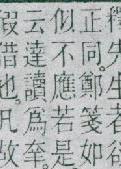 先生
正同。鄭箋如
似不應若是
云達讀爲羍。
借也。凡故